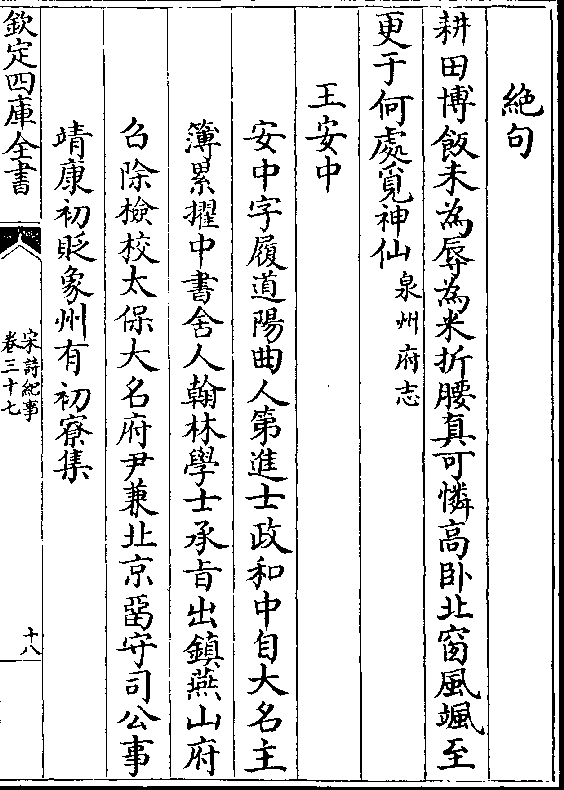 絶句
耕田博飯未為辱為米折腰真可憐髙卧北窗風颯至
更于何處覓神仙泉州府志
王安中
安中字履道陽曲人第進士政和中自大名主
簿累擢中書舍人翰林學士承㫖出鎮燕山府
召除檢校太保大名府尹兼北京留守司公事
靖康初貶象州有初寮集
欽定四庫全書
宋詩紀事
卷三十七
十八